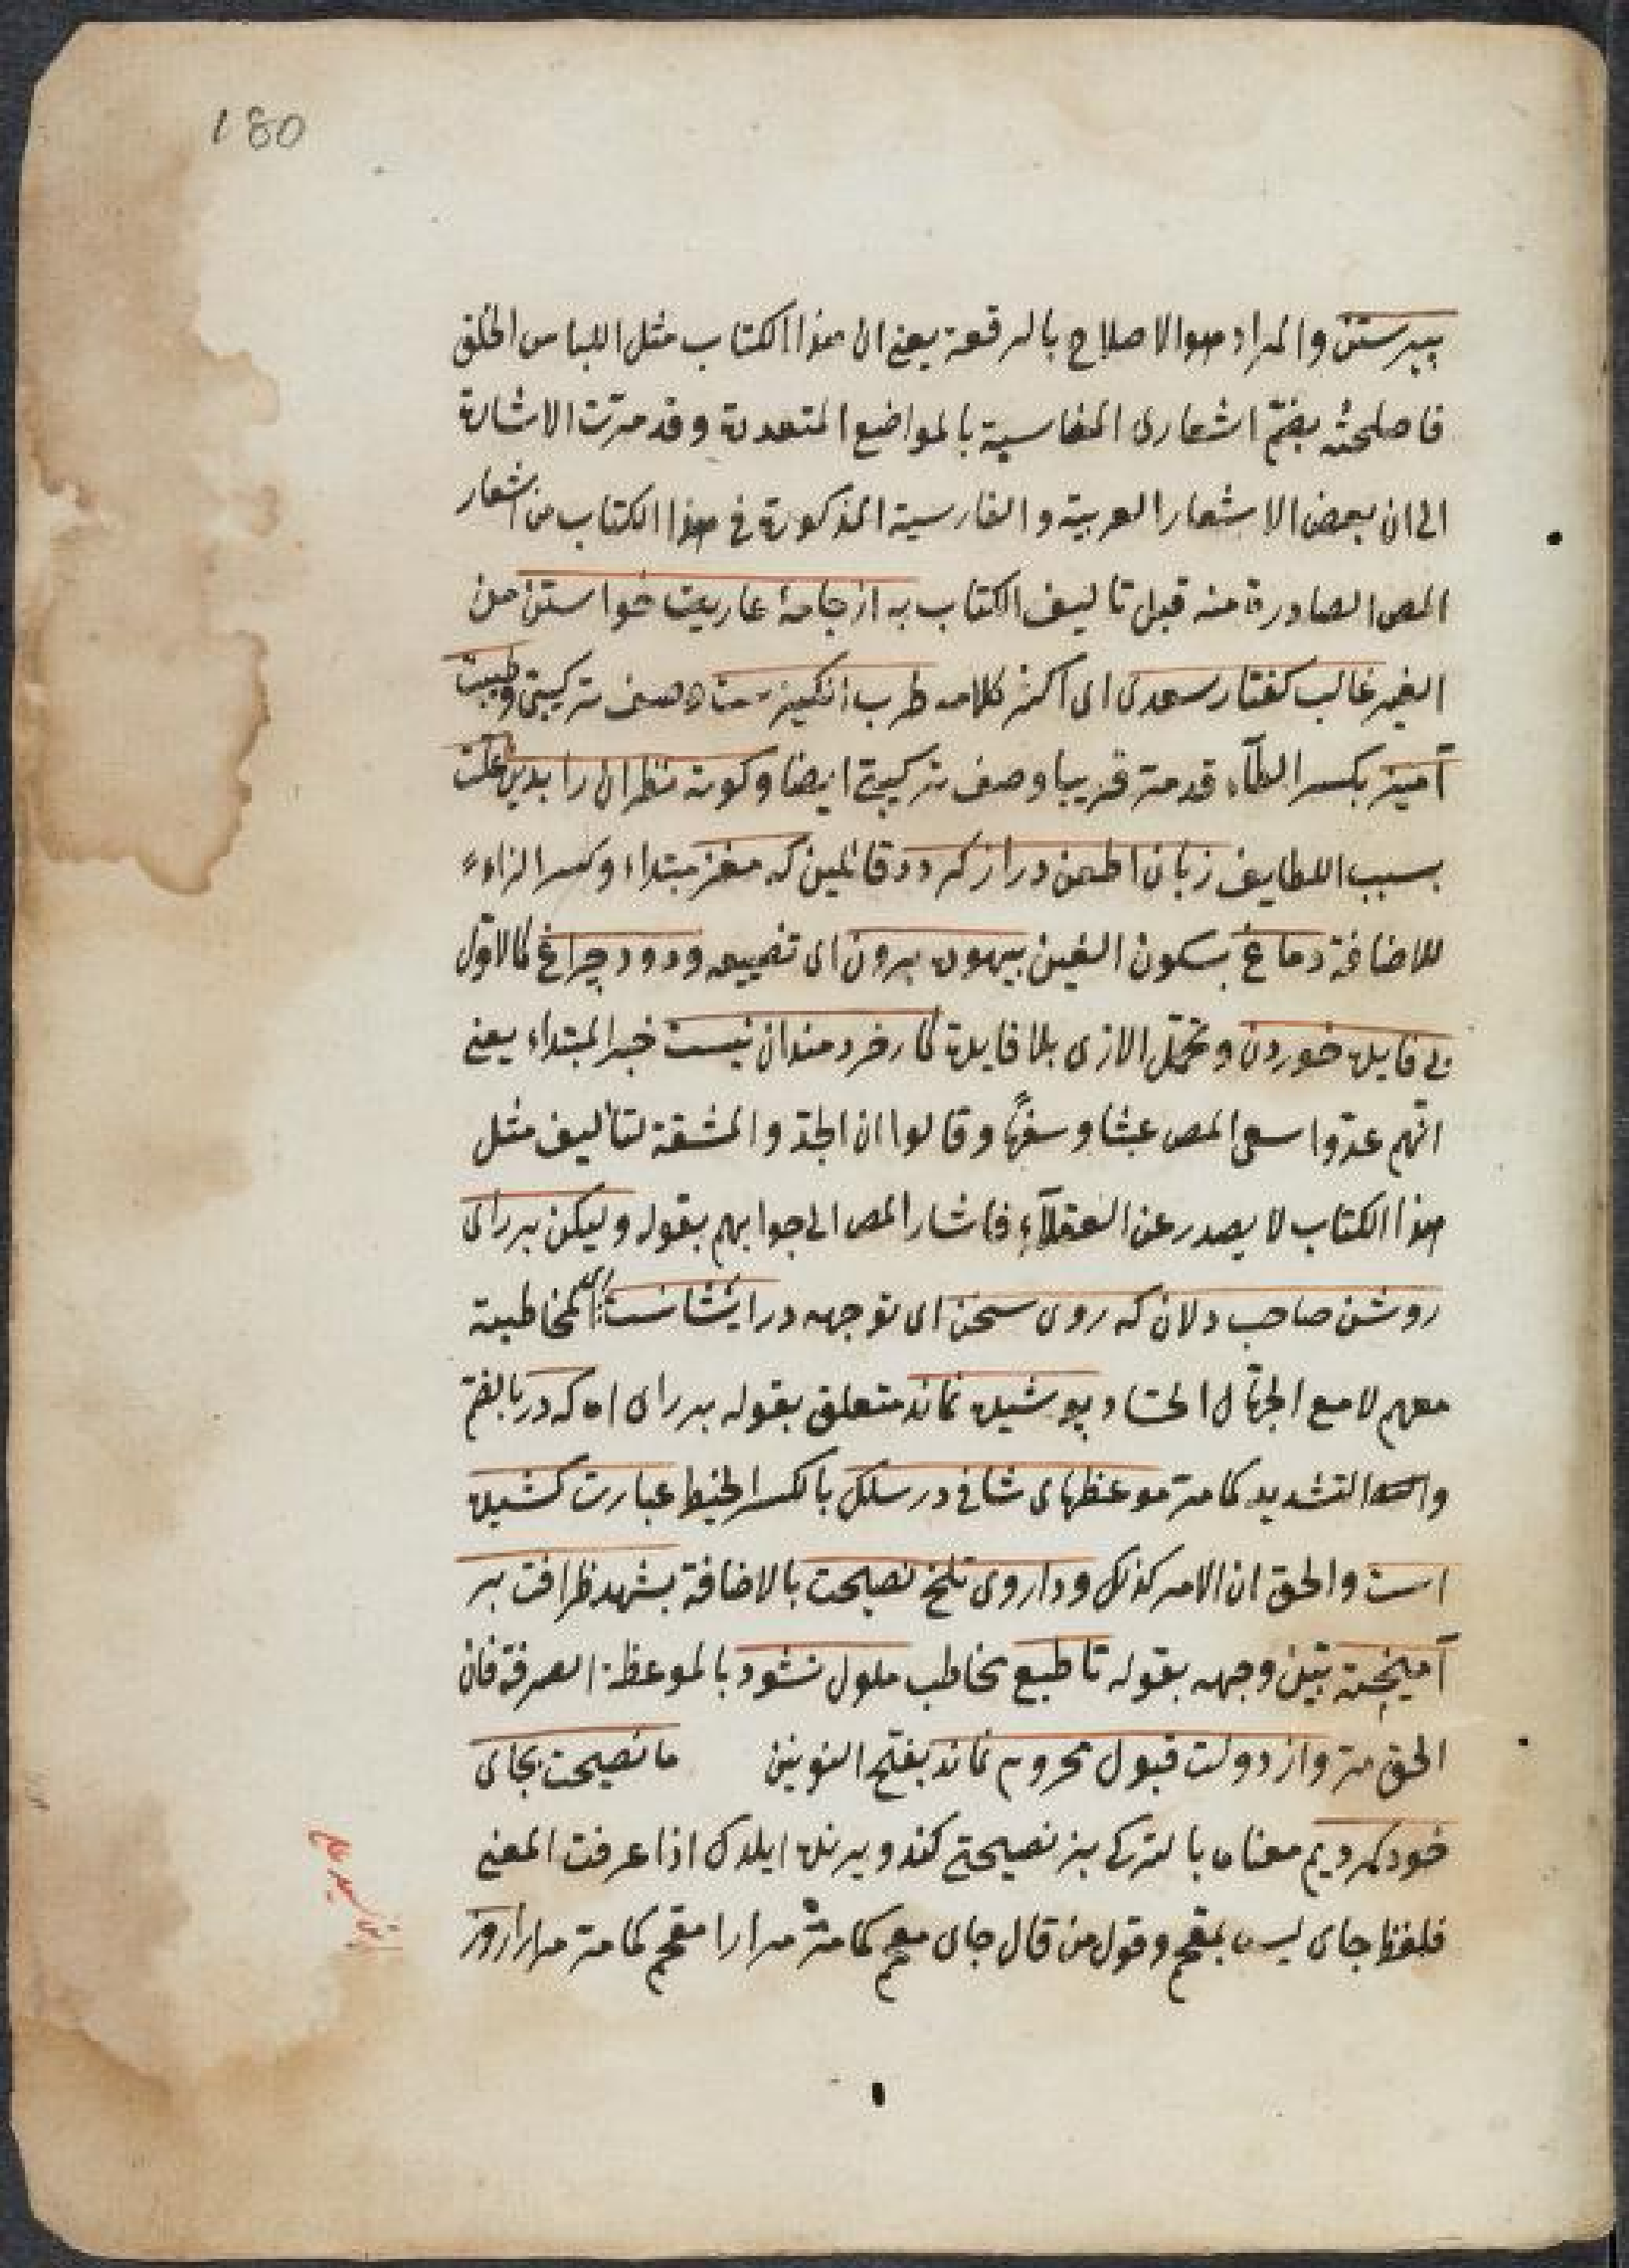 180
پیرستن والمراد هو الاصلاح بالرقعة یعنی ان هذا الکتاب مثل اللباس الخلق
فاصلحته بضمّ اشعاری المناسبة بالمواضع المتعددة وقد مرّت الاشارة
الی ان بعض الاشعار العربیة والفارسیة المذکورة فی هذا الکتاب من اشعار
المص الصادرة منه قبل تالیف الکتاب به از جامهٔ عاریت خواستن من
الغیر غالب کفتار سعدی ای اکثر کلامه طرب انکیزست وصف ترکیبی وطیبت
آمیز بکسر الطآء قد مرّ قریبا وصف ترکیبی ایضا وکوته نظران را بدین علّت
بسبب اللطایف زبان طعن دراز کردد قائلین که مغز مبتداء وکسر الزاء
للاضافة دماغ بسکون الغین بیهوده بردن ای تضییعه ودود چراغ کالاوّل
بی فایده خوردن وتحمّل الاذی بلا فایدة کار خردمندان نیست خبر المبتداء یعنی
انّهم عدّوا سعی المص عبثا وسفهًا وقالوا ان الجدّ والمشقة لتألیف مثل
هذا الکتاب لا یصدر عن العقلآء فاشار المص الی جوابهم بقوله ولیکن بر رای
روشن صاحب دلان که روی سخن ای توجهه در ایشانست ای المخاطبة
معهم لا مع الجهّال الحساد پوشیده نماند متعلق بقوله بر رای اه که در بالضم
والتشدید کما مرّ موعظهای شافی در سلک بالکسر الخیط عبارت کشیده
است والحق ان الامر کذلک وداروی تلخ نصیحت بالاضافة بشهد ظرافت بر
آمیخته بیّن وجهه بقوله تا طبع مخاطب ملول نشود بالموعظة الصرفة فان
الحق مرّ واز دولت قبول محروم نماند بفتح النونین ما نصیحت بجای
خود کردیم معناه بالترکی بز نصیحتی کندو یرنده ایلدک اذا عرفت المعنی
فلفظ جای لیس بمقحم وقول من قال جای مقحم کما مرّ مرارا مقحم کما مرّ مرارا روز